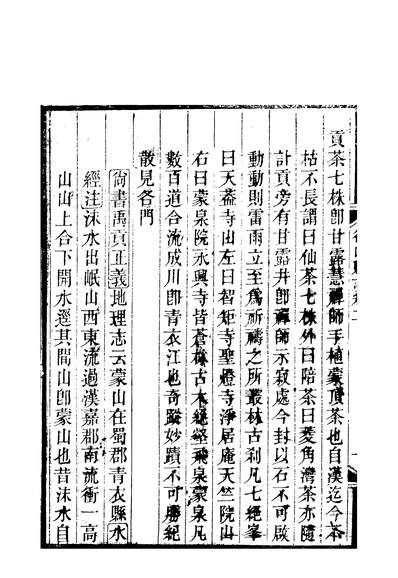 貢茶七株卽甘露慧禪師手植蒙頂茶也自漢迄今不
枯不長謂曰仙茶七株外曰陪茶曰菱角灣茶亦隨
計貢旁有甘露井卽禪師示寂處今封以石不可啟
動動則雷雨立至爲祈禱之所叢林古刹凡七絕峯
曰天葢寺山左曰智矩寺聖燈寺淨居庵天竺院山
右曰蒙泉院永興寺皆蒼林古木絕壑飛泉蒙泉凡
數百道合流成川卽青衣江也奇蹤妙蹟不可勝紀
散見各門
尙書禹貢正義地理志云蒙山在蜀郡青衣縣水
經注沫水出岷山西東流過漢嘉郡南流衝一高
山山上合下開水逕其閒山卽蒙山也昔沫水自